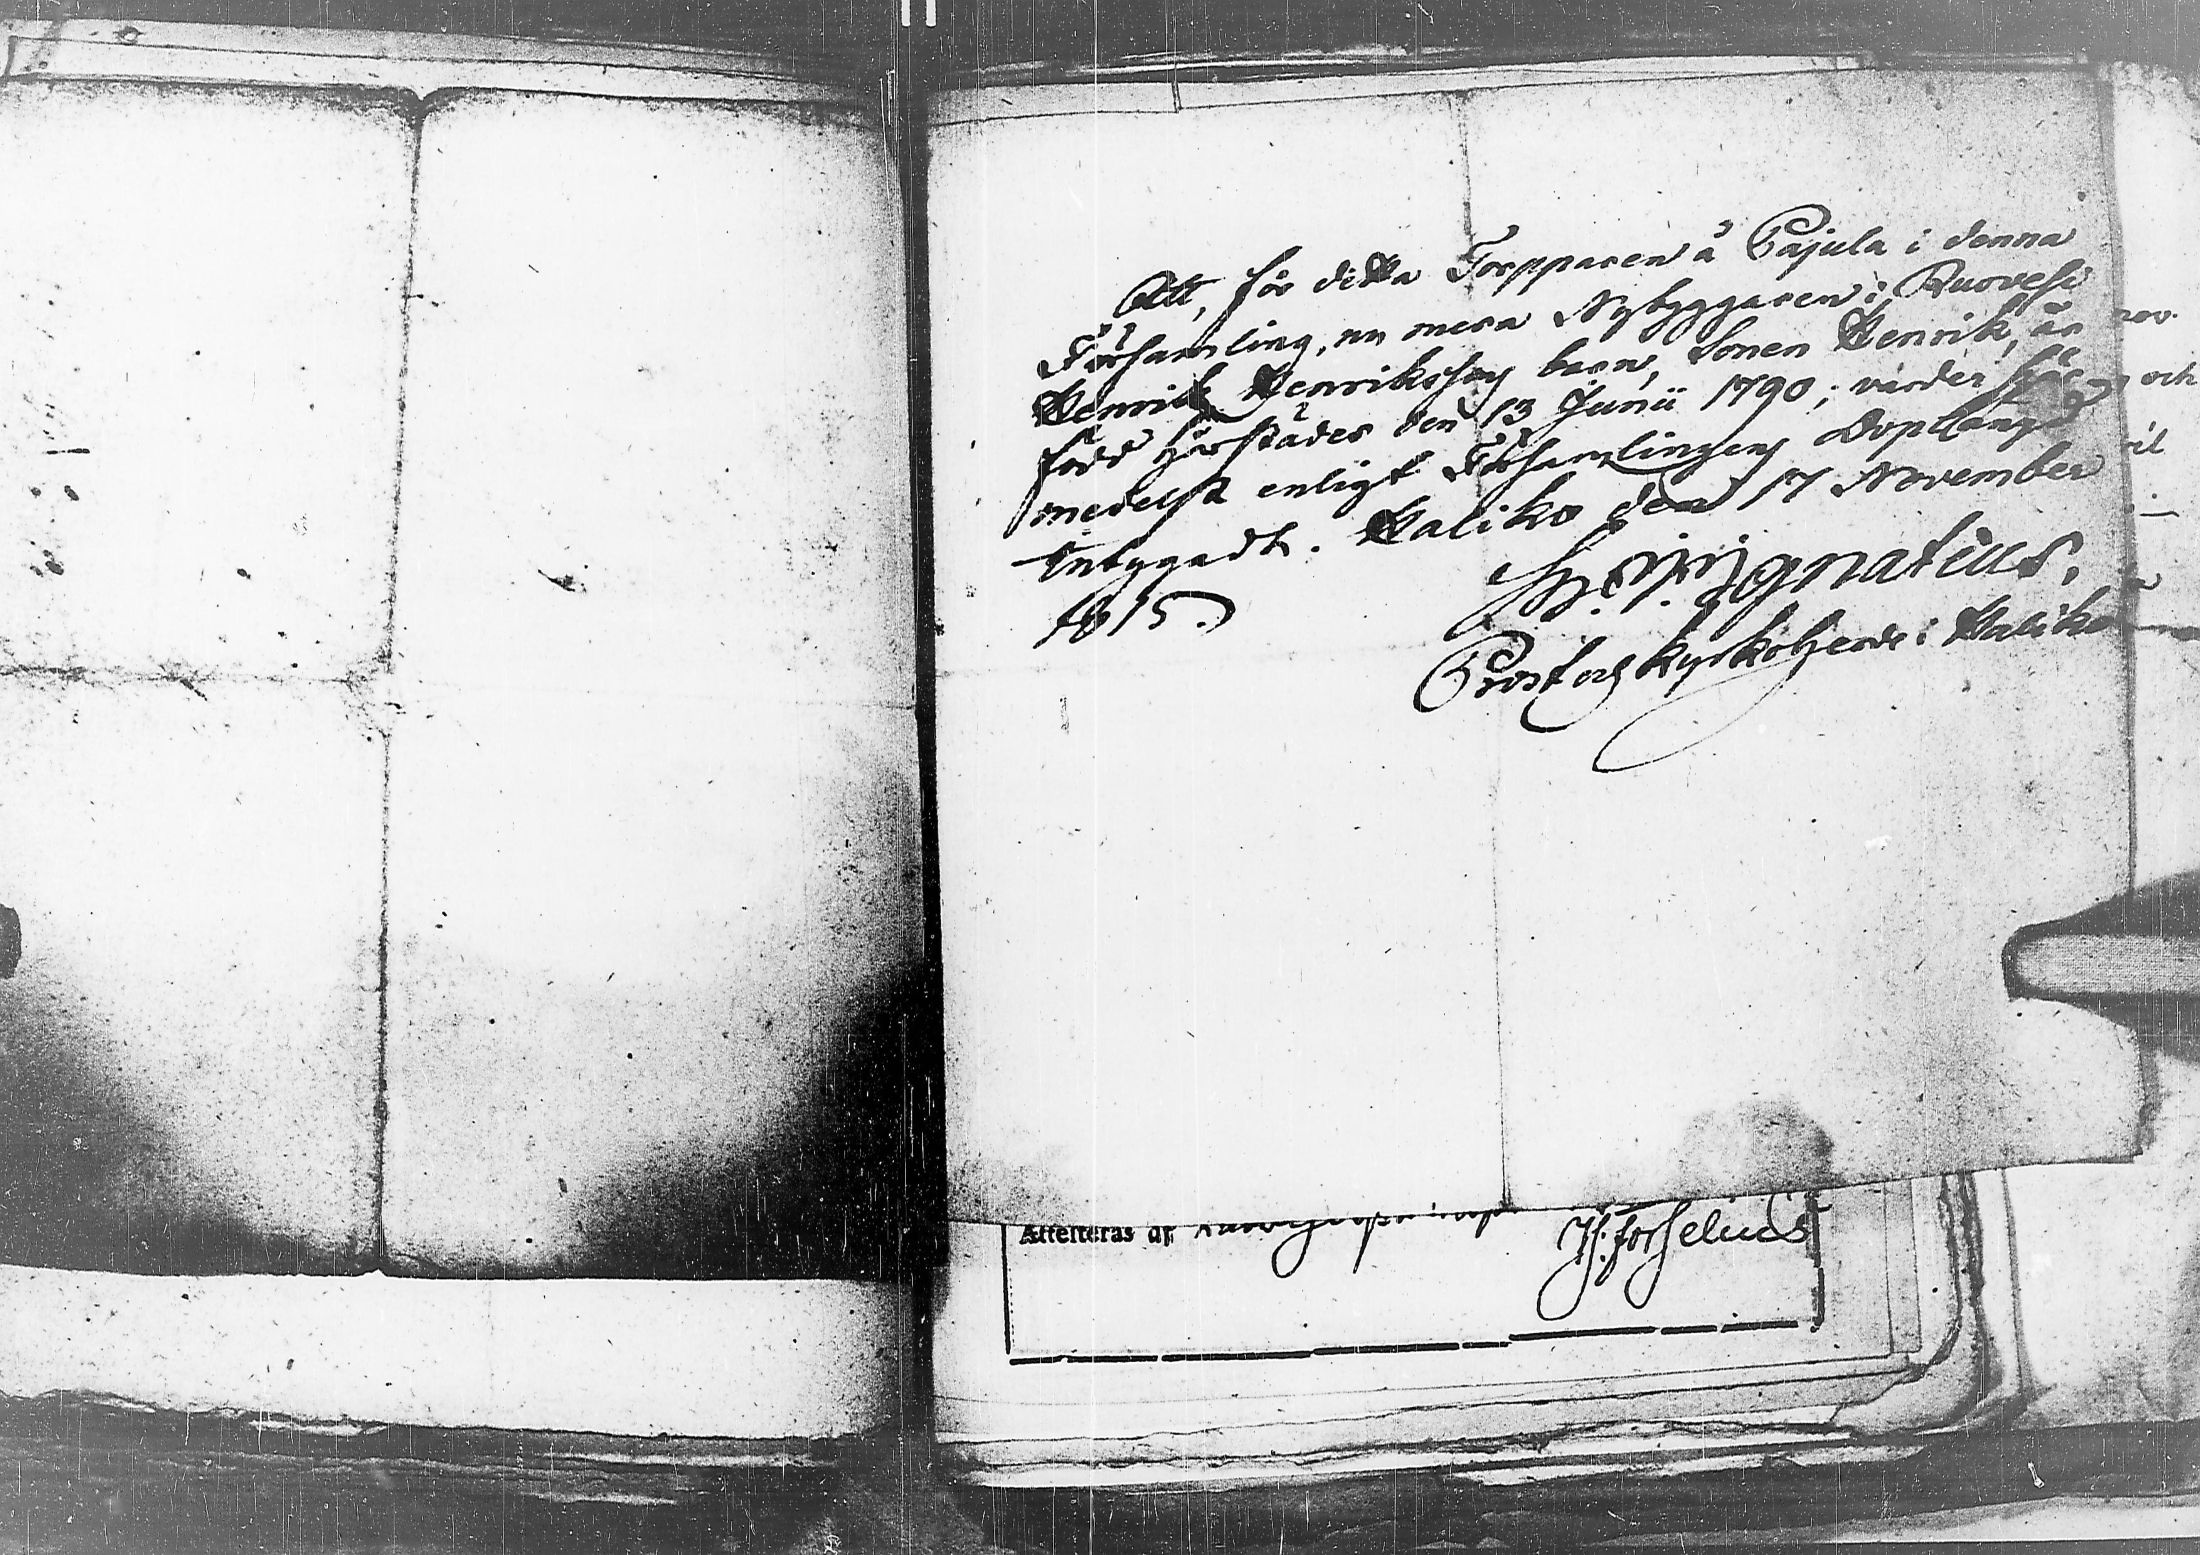 Att, för detta Torpparen å Pajula i denna
Församling, nu mera Nybyggaren i Ruovesi
Henrik Henrikssons barn, Sonen Henrik, är
född härstädes den 13 Junii 1790; varder här
medelst enligt Församlingens Doplängd
intygadt. Haliko den 17 November
1815.
Ignatius.
Prost och Kyrkoherde i Haliko
och
Attesteras af
Forselius